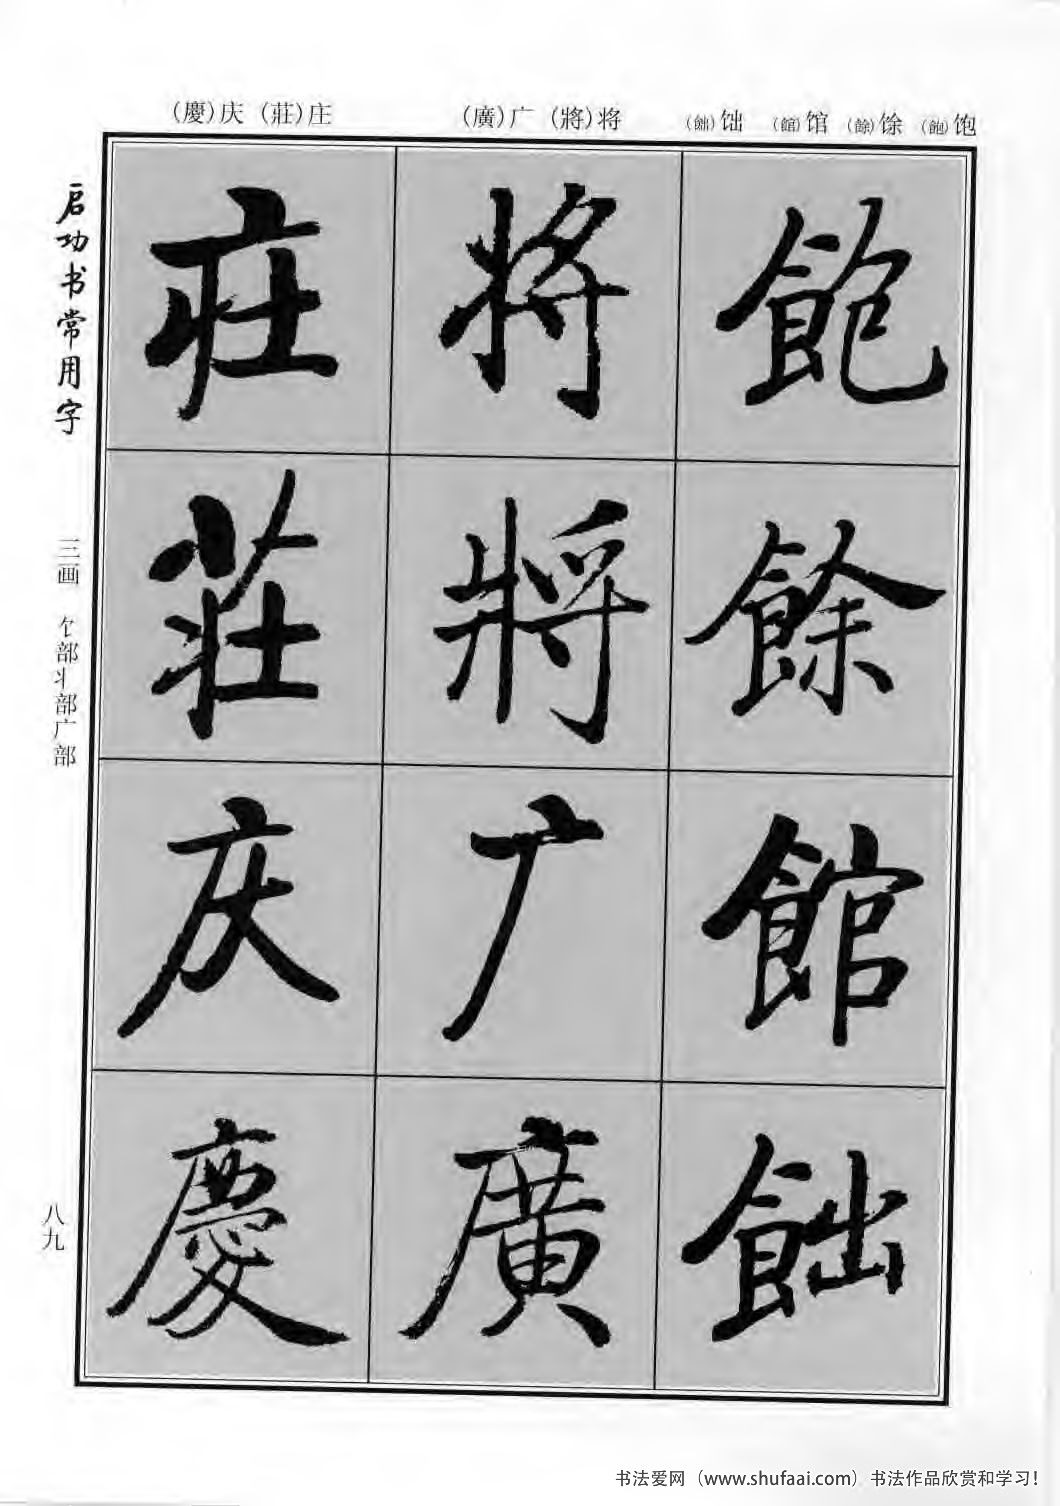 （飽）饱
（餘）馀
（館）馆
（飿）饳
（將）将
（廣）广
（莊）庄
（慶）庆
飽
餘
館
飿
将
將
广
廣
庄
莊
庆
慶
启功书常用字
三画 饣部丬部广部
八九
书法爱网（www.shufaai.com）书法作品欣赏和学习！